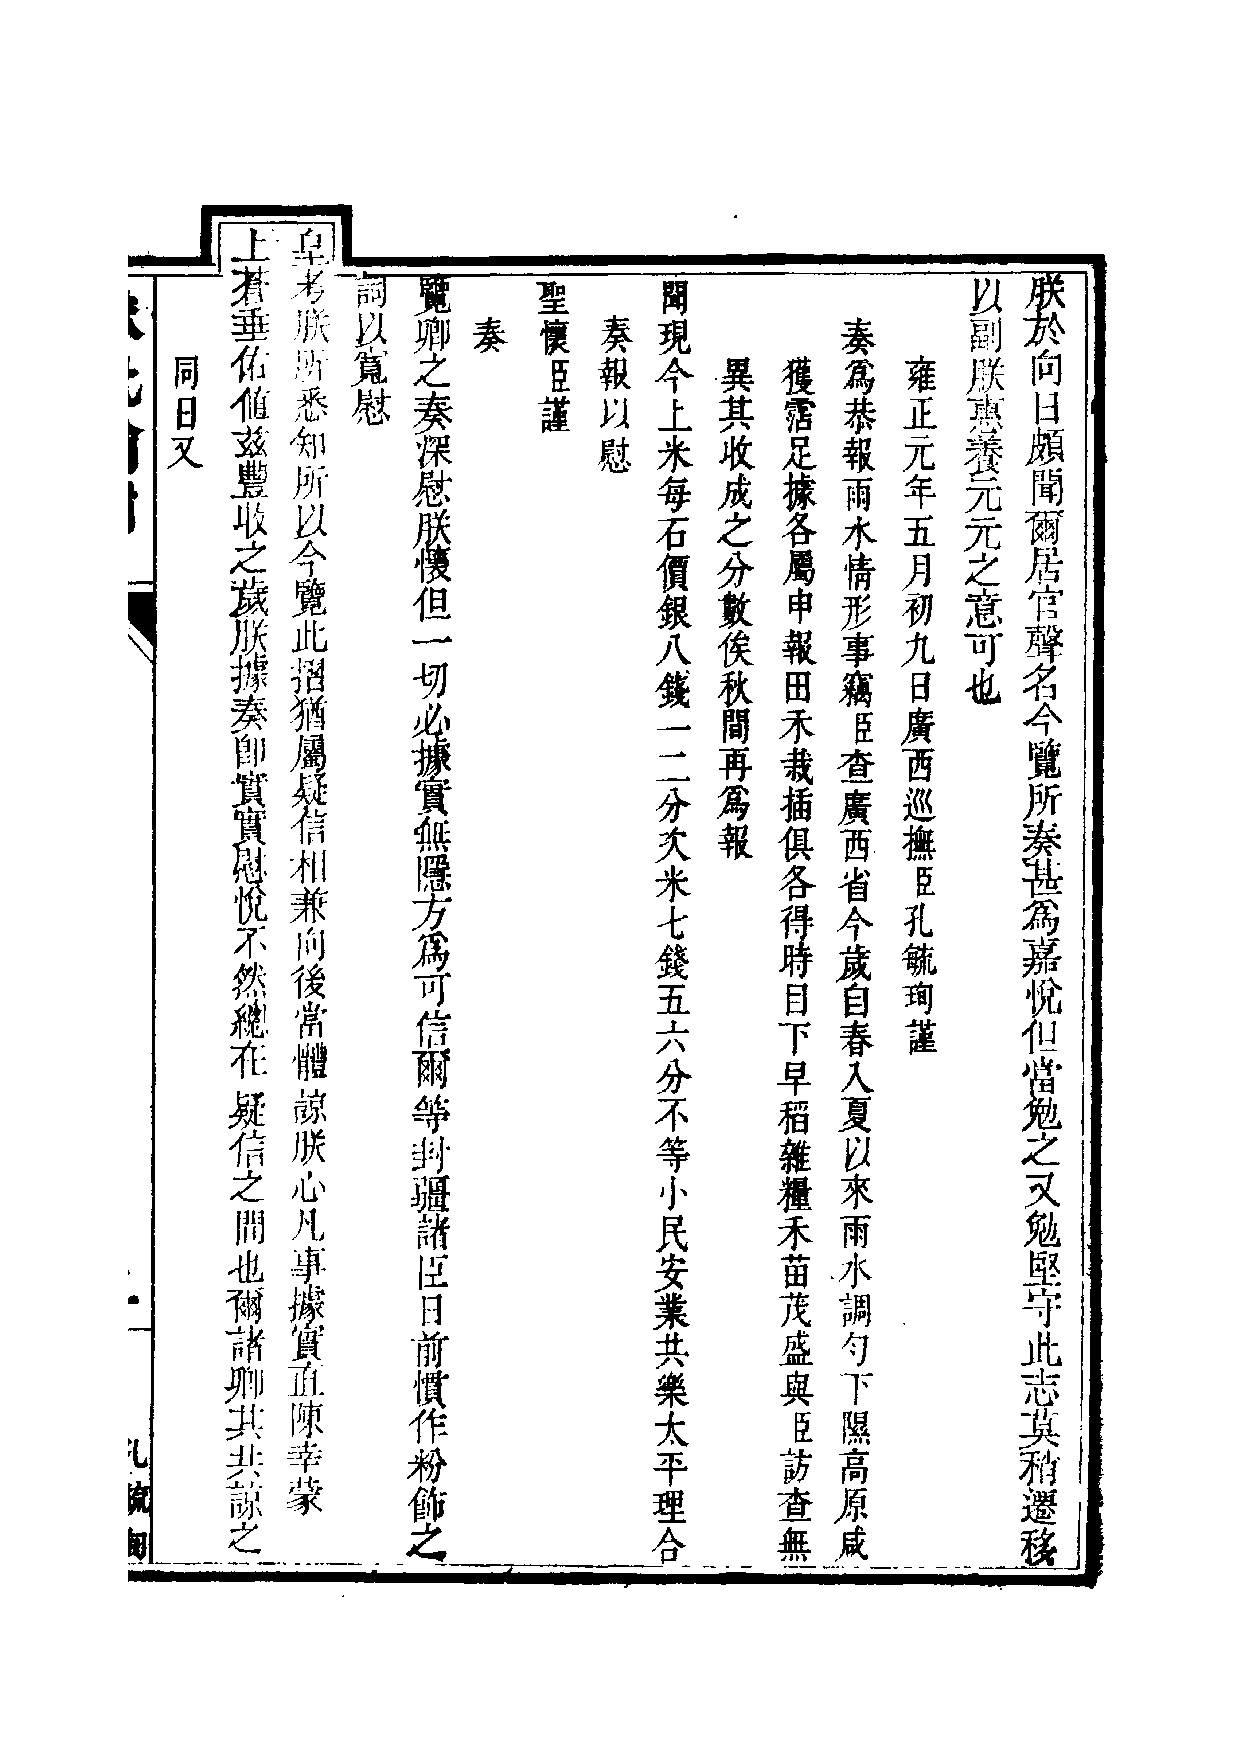 朕於向日頗聞爾居官聲名今覽所奏甚為嘉悅但當勉之又勉堅守此志莫稍遷移
以副朕惠養元元之意可也
雍正元年五月初九日廣西巡撫臣孔毓珣謹
奏為恭報雨水情形事竊臣查廣西省今歲自春入夏以來雨水調勻下隰高原咸
獲霑足據各屬申報田禾栽插俱各得時目下早稻雜糧禾苗茂盛與臣訪查無
異其收成之分數俟秋間再為報
聞現今上米每石價銀八錢一二分次米七錢五六分不等小民安業共樂太平理合
奏報以慰
聖懷臣謹
奏
覽卿之奏深慰朕懷但一切必據實無隱方為可信爾等封疆諸臣日前慣作粉飾之
詞以寬慰
皇考朕所悉知所以今覽此摺猶屬疑信相兼向後當體諒朕心凡事據實直陳幸蒙
上蒼垂佑值茲豐收之歲朕據奏即實實慰悅不然總在疑信之間也爾諸卿其共諒之
同日又
孔毓珣